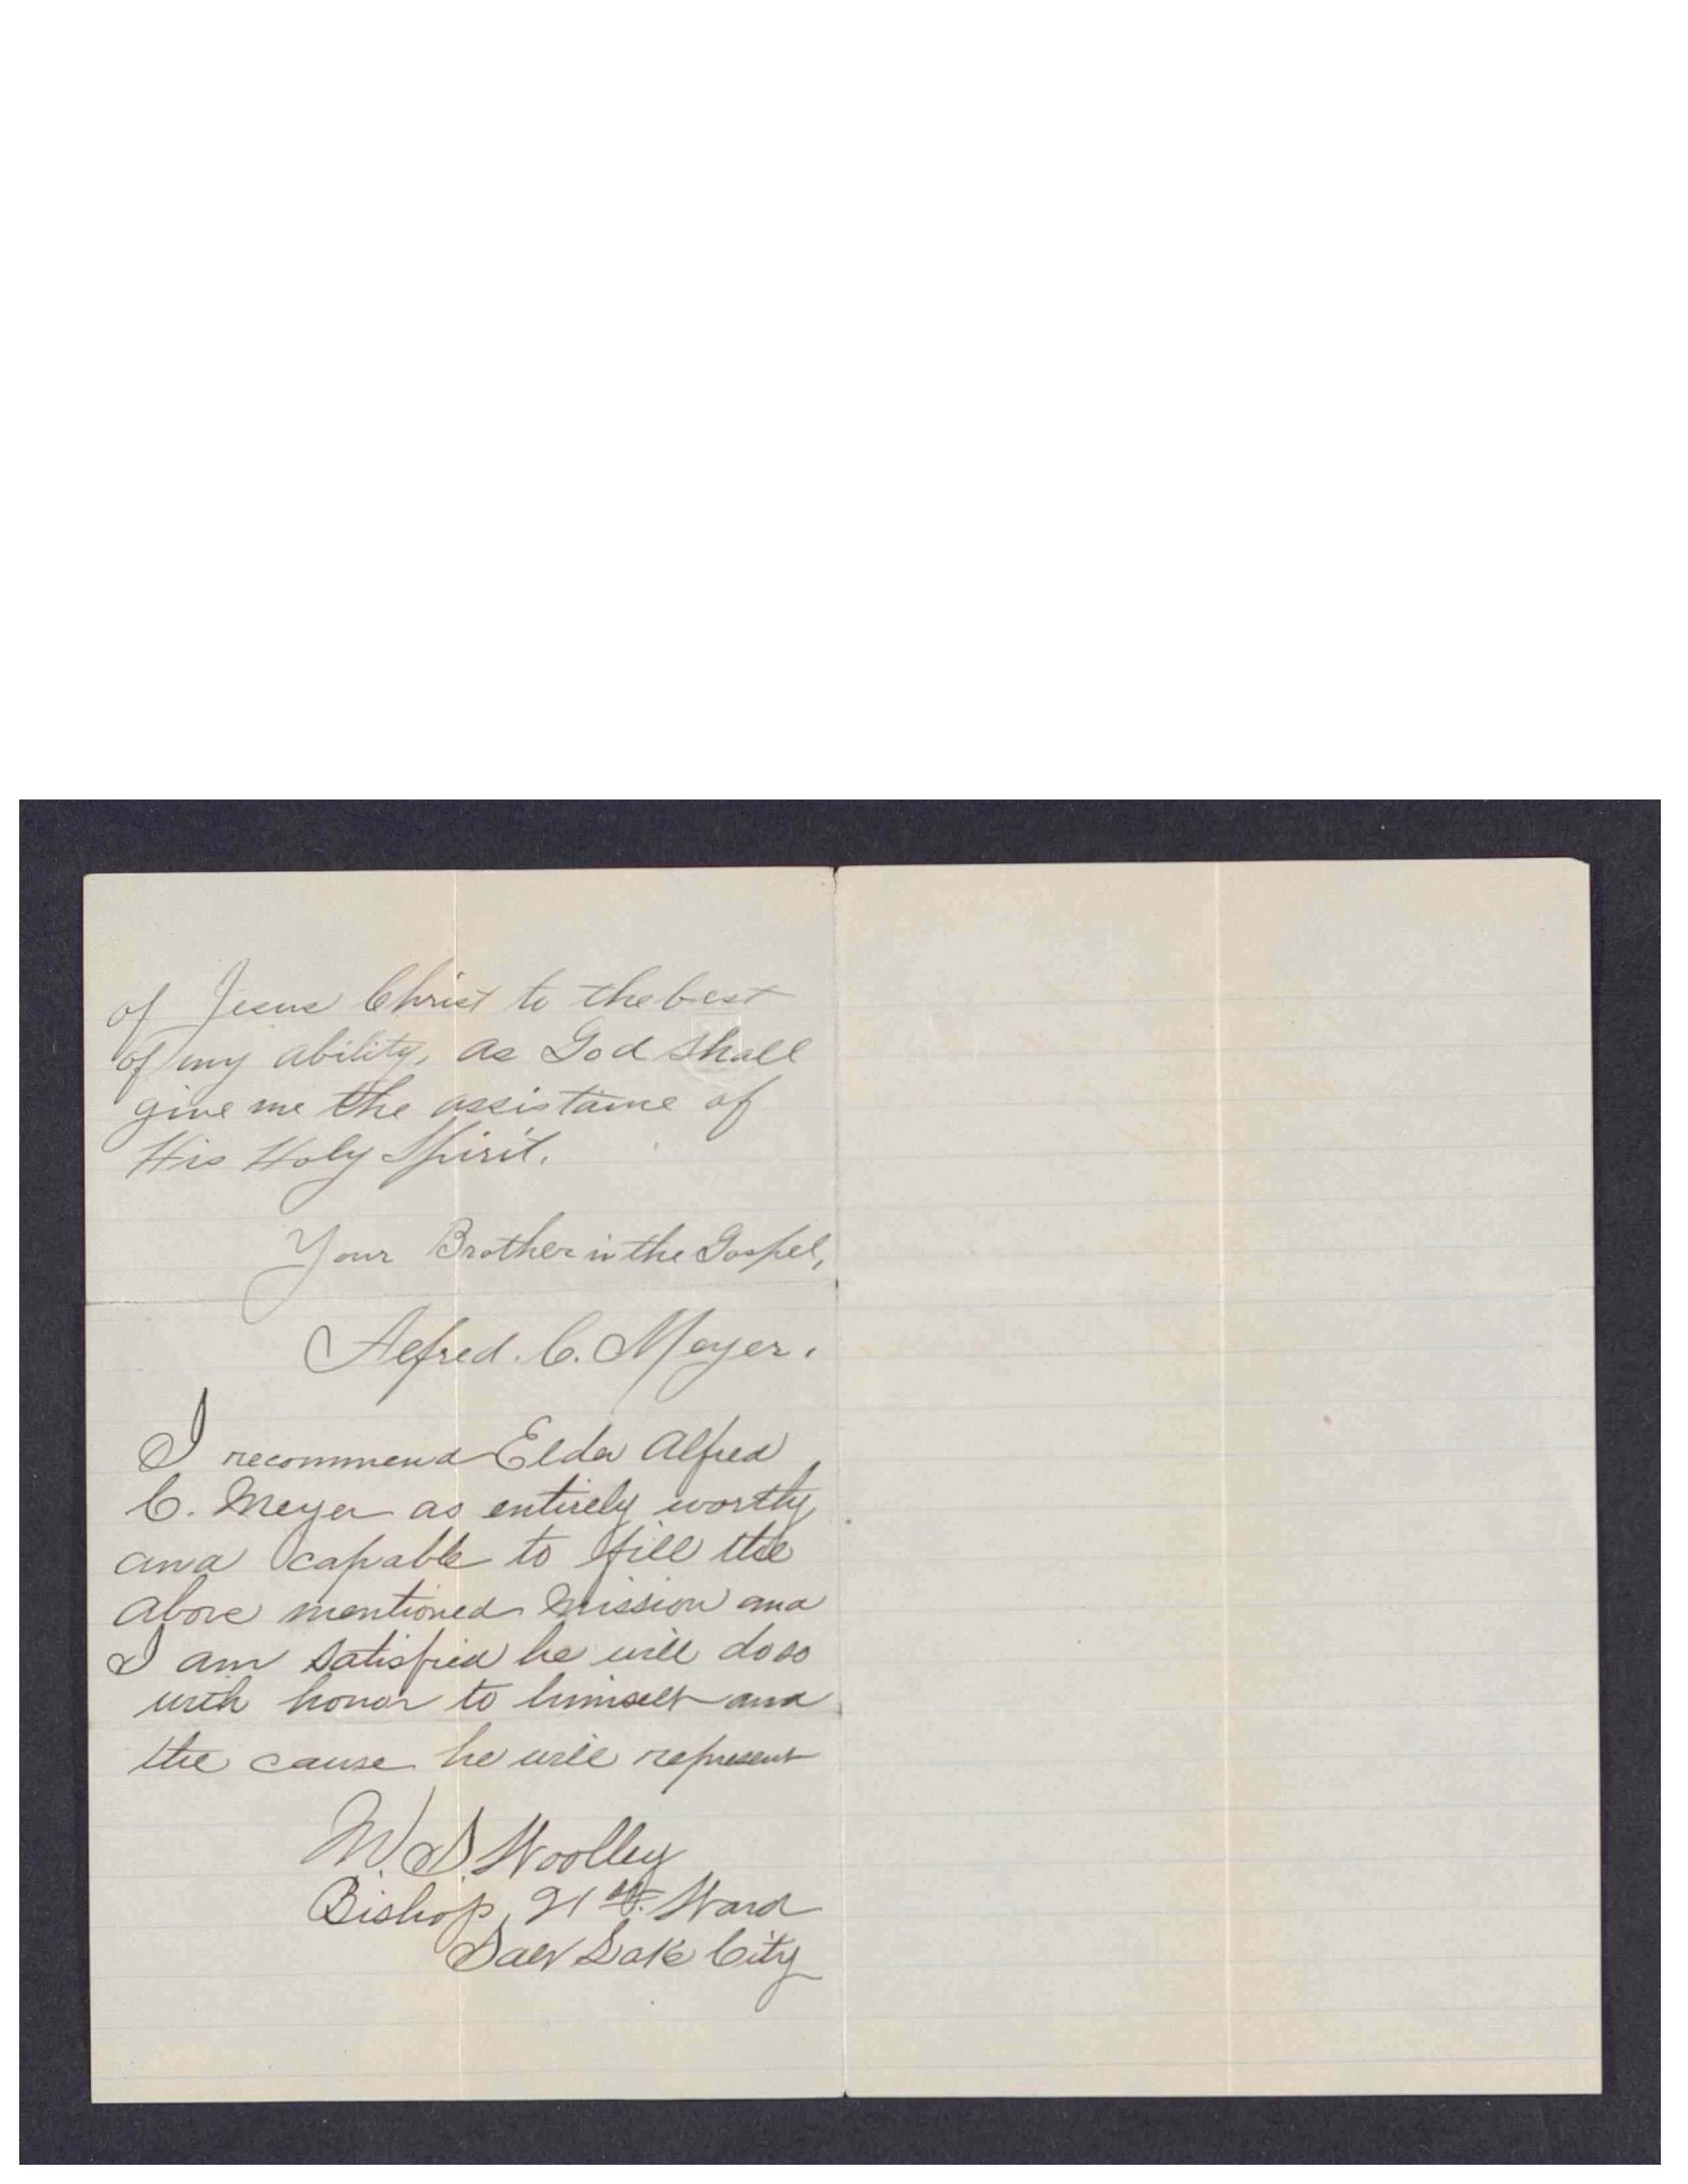 of Jesus Christ to the best
of my ability, as God shall
give me the assistance of
His Holy Spirit.
Your Brother in the Gospel,
Alfred. C. Meyer.
I recommend Elder Alfred
C. Meyer as entirely worthy
and capable to fill the
above mentioned mission and
I am satisfied he will do so
with honor to himself and
the cause he will represent
M. S. Woolley
Bishop, 21st. Ward
Salt Lake City